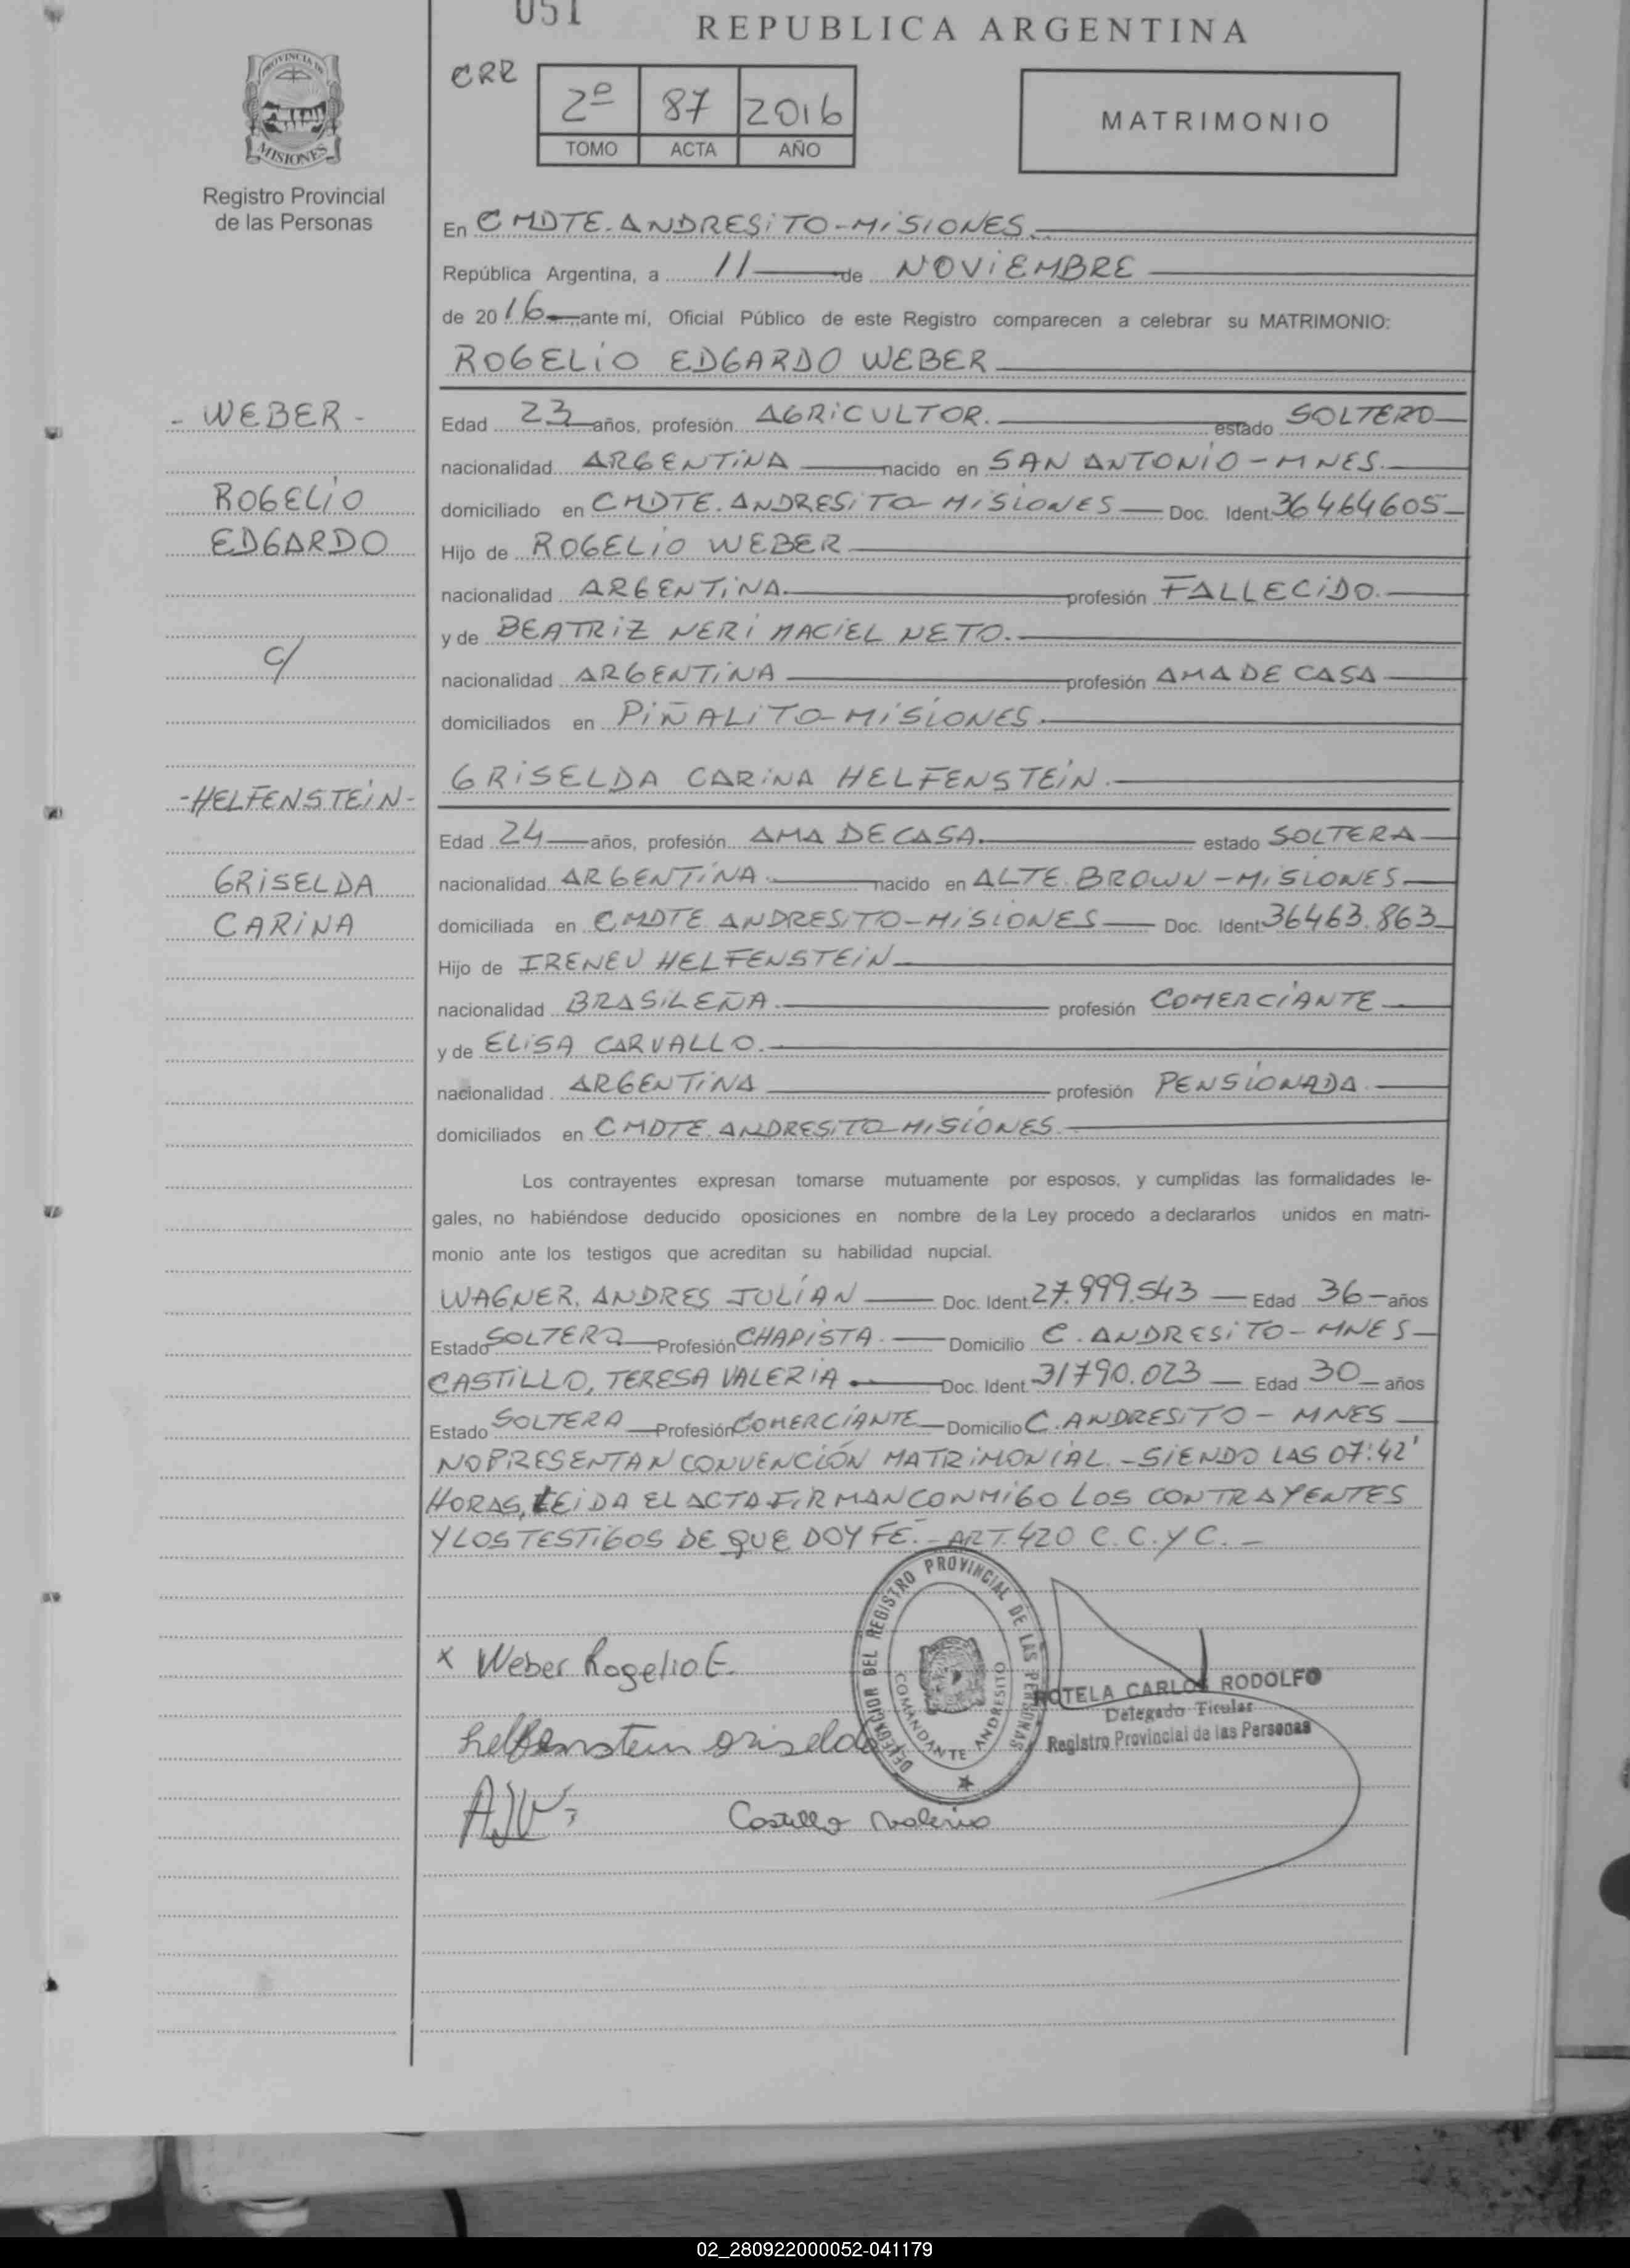 051
REPUBLICA ARGENTINA
PROVINCIA DE
MISIONES
Registro Provincial
de las Personas
CRR
2º 87 2016
TOMO ACTA AÑO
MATRIMONIO
En CMDTE. ANDRESiTO-MiSiONES.
República Argentina, a 11 de NOViEMBRE
de 2016 ante mí, Oficial Público de este Registro comparecen a celebrar su MATRIMONIO:
ROGELiO EDGARDO WEBER
- WEBER -
Edad 23 años, profesión AGRiCULTOR. estado SOLTERO
nacionalidad ARGENTiNA nacido en SAN ANTONiO-MNES.
ROGELiO
domiciliado en CMDTE. ANDRESiTO-MiSiONES Doc. Ident. 36464605
EDGARDO
Hijo de ROGELiO WEBER
nacionalidad ARGENTiNA. profesión FALLECiDO.
y de BEATRiZ NERi MACiEL NETO.
C/
nacionalidad ARGENTiNA profesión AMA DE CASA
domiciliados en PiÑALiTO-MiSiONES.
GRiSELDA CARiNA HELFENSTEiN.
-HELFENSTEiN-
Edad 24 años, profesión AMA DE CASA. estado SOLTERA
GRiSELDA
nacionalidad ARGENTiNA. nacido en ALTE. BROWN-MiSiONES
CARiNA
domiciliada en CMDTE. ANDRESiTO-MiSiONES Doc. Ident. 36463.863
Hijo de IRENEU HELFENSTEiN
nacionalidad BRASiLEÑA. profesión COMERCiANTE
y de ELiSA CARVALLO.
nacionalidad ARGENTiNA profesión PENSiONADA.
domiciliados en CMDTE. ANDRESiTO-MiSiONES.
Los contrayentes expresan tomarse mutuamente por esposos, y cumplidas las formalidades le-
gales, no habiéndose deducido oposiciones en nombre de la Ley procedo a declararlos unidos en matri-
monio ante los testigos que acreditan su habilidad nupcial.
WAGNER, ANDRES JULiAN Doc. Ident. 27.999.543 Edad 36 años
Estado SOLTERO Profesión CHAPiSTA. Domicilio C. ANDRESiTO-MNES
CASTiLLO, TERESA VALERiA Doc. Ident. 31790.023 Edad 30 años
Estado SOLTERA Profesión COMERCiANTE Domicilio C. ANDRESiTO - MNES
NO PRESENTAN CONVENCiÓN MATRiMONiAL. - SiENDO LAS 07:42'
HORAS, LEiDA EL ACTA FiRMAN CONMiGO LOS CONTRAYENTES
Y LOS TESTiGOS DE QUE DOY FE. - ART. 420 C.C.YC. -
DELEGACION DEL REGISTRO PROVINCIAL DE LAS PERSONAS
COMANDANTE ANDRESITO
x Weber Rogelio E.
ROTELA CARLOS RODOLFO
Delegado Titular
Registro Provincial de las Personas
helfenstein Griselda
AJW
Castillo Valeria
02_280922000052-041179